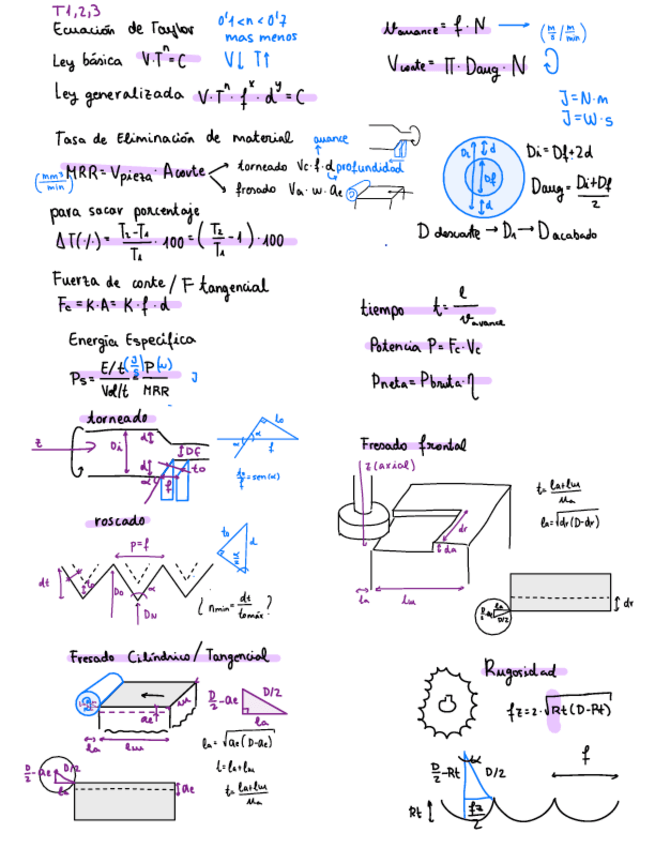 T1,2,3
Ecuación de Taylor
0'1<n<0'7
mas menos
Ley básica V·Tⁿ=C V↓ T↑
Ley generalizada V·Tⁿ·fˣ·dʸ=C
Vavance= f·N → (m/s / m/min)
Vcorte= Π·Davg·N
J=N·m
J=W·s
Tasa de Eliminación de material
avance
(mm³/min) MRR=Vpieza·Acorte
torneado Vc·f·d profundidad
fresado Va·w·ae
Di d Df d
Di=Df+2d
Davg=(Di+Df)/2
D desbaste → D1 → D acabado
para sacar porcentaje
ΔT(%)=(T2-T1)/T1·100=(T2/T1-1)·100
Fuerza de corte/F tangencial
Fc=K·A=K·f·d
tiempo t=l/vavance
Energía Específica
Potencia P=Fc·Vc
Ps=(E/t)/(Vol/t) (J/s) = P(w)/MRR J
Pneta=Pbruta·η
torneado
z Di d DF d α f to
α α to f
to/f=sen(α)
Fresado frontal
z(axial)
dr
da
la lw
t=(la+lw)/ua
la=√dr(D-dr)
la D/2 dr
roscado
p=f
dt to Do α DN
to d α/2
¿ nmin=dt/tomáx ?
Fresado Cilíndrico/Tangencial
w
ae
la lw
D/2-ae D/2
la
la=√ae(D-ae)
l=la+lw
t=(la+lw)/ua
D/2-ae D/2
la ae
Rugosidad
fz=2·√Rt(D-Rt)
f
D/2-Rt D/2
Rt fz/2